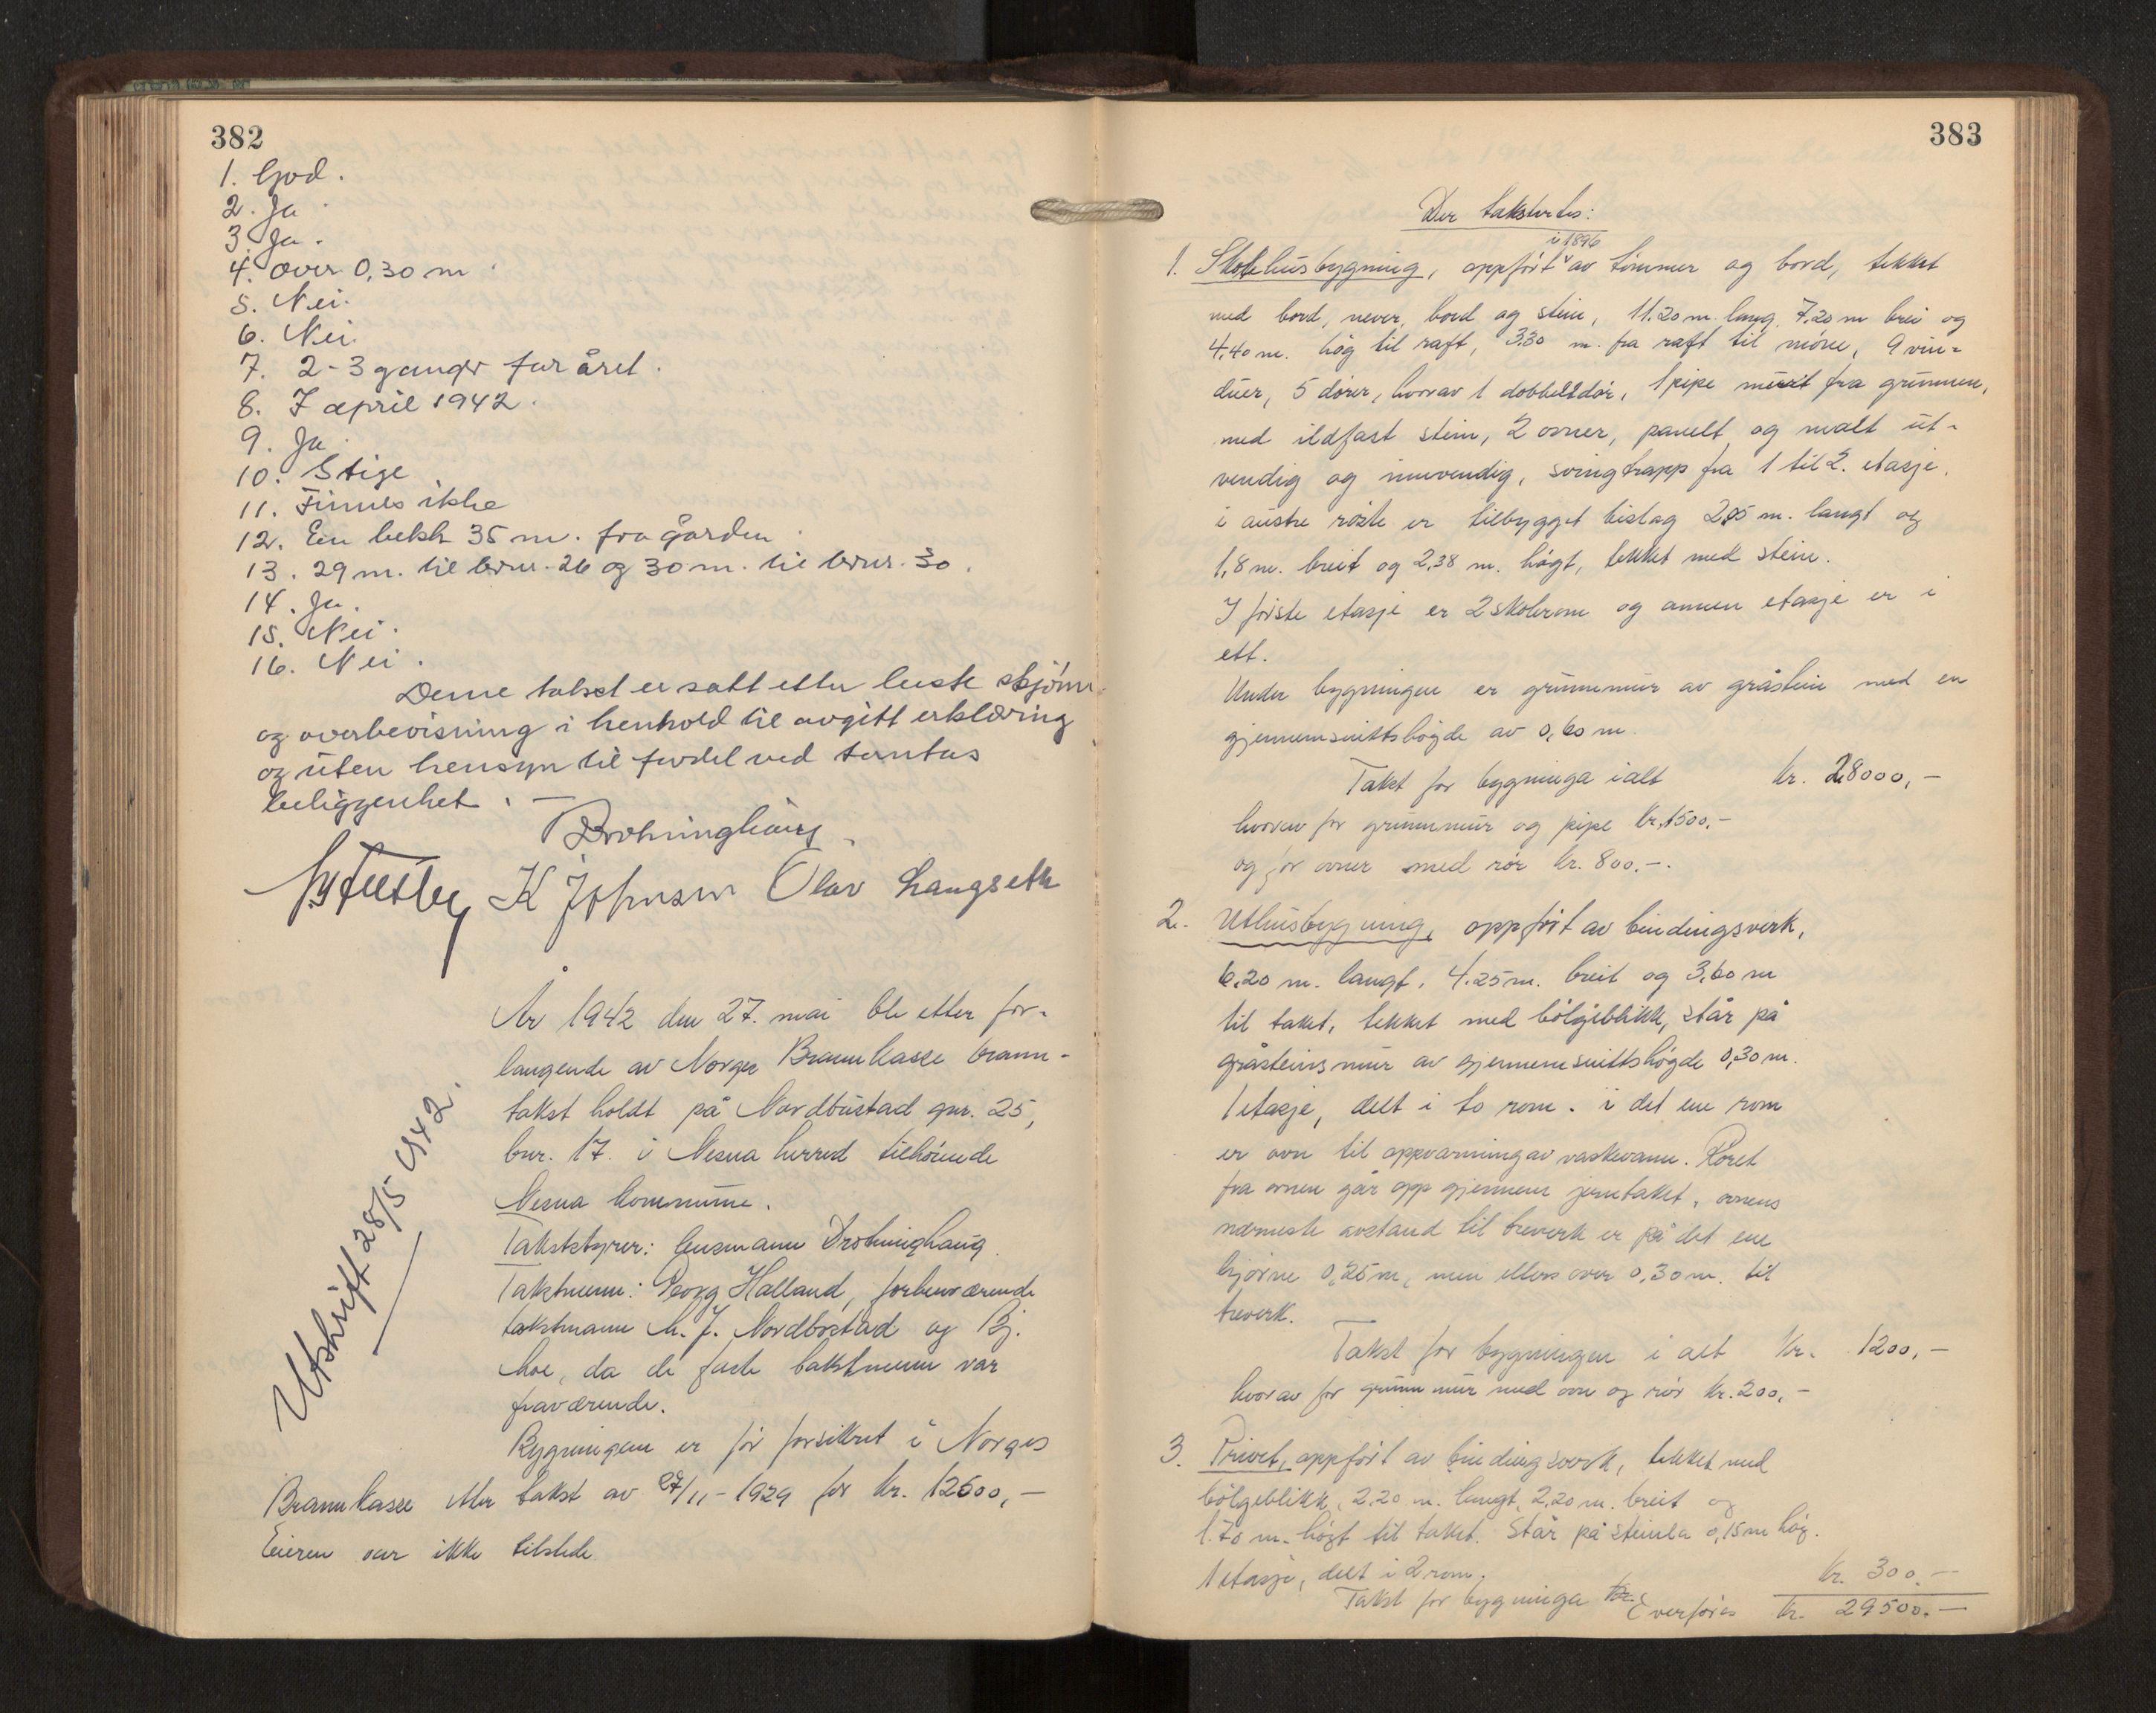 382
1. God.
2. Ja
3. Ja.
4. over 0,30 m
5. Nei.
6. Nei.
7. 2-3 ganger for året.
8. 7 april 1942.
9. Ja
10. Stige
11. Finnes ikke
12. Ein bekk 35 m. fra gården.
13. 29 m. til brnr. 26 og 30 m. til brnr. 30.
14. Ja.
15. Nei.
16. Nei.
Denne takst er satt etter beste skjønn
og overbevisning i henhold til avgitt erklæring
og uten hensyn til fordel ved tomtas
beliggenhet. —
Drotninghaug
K Johnsen Olav Langseth
År 1942 den 27. mai ble etter for-
langende av Norges Brannkasse brann-
takst holdt på Nordbustad gnr. 25,
bnr. 17. i Nesna herred tilhørende
Nesna kommune.
Takststyrer: lensmann Drotninghaug.
Takstmenn: Georg Halland, forhenværende
takstmann M. J. Nordbostad og Bj.
Moe, da de faste takstmenn var
fraværende.
Utskrift 28/5 1942.
Bygningene er før forsikret i Norges
Brannkasse etter takst av 27/11-1929 for kr. 12600,-
Eieren var ikke tilstede
383
Der taksertes:
i 1896
1. Skolehusbygning, oppført av tømmer og bord, tekket
med bord, never, bord og stein, 11.20 m. lang, 7,20 m brei og
4,40 m. høg til raft, 3.30 m. fra raft til møne, 9 vin-
duer, 5 dører, hvorav 1 dobbeltdør, 1 pipe murt fra grunnen,
med ildfast stein, 2 ovner, panelt og malt ut-
vendig og innvendig, svingtrapp fra 1 til 2. etasje.
i austre røste er tilbygget bislag 2,05 m. langt og
1,8 m. breit og 2,38 m. høgt, tekket med stein.
I første etasje er 2 skolerom og annen etasje er i
ett.
Under bygningen er grunnmur av gråstein med en
gjennemsnittshøgde av 0,60 m.
Takst for bygninga ialt kr. 28000,-
hvorav for grunnmur og pipe kr. 1500.-
og for ovner med rør kr. 800.-.
2. Uthusbygning, oppført av bindingsverk,
6.20 m. langt, 4.25 m. breit og 3,60 m
til taket, tekket med bølgeblikk, står på
gråsteinsmur av gjennemsnittshøgde 0,30 m.
1 etasje, delt i to rom. i det ene rom
er ovn til oppvarming av vaskevann. Røret
fra ovnen går opp gjennem jerntaket, ovnens
nærmeste avstand til treverk er på det ene
hjørne 0,25 m, men ellers over 0,30 m. til
treverk.
Takst for bygningen i alt kr. 1200,-
hvorav for grunnmur med ovn og rør kr. 200,-
3. Privet, oppført av bindingsverk, tekket med
bølgeblikk, 2,20 m. langt, 2,20 m. breit og
1.70 m. høgt til taket. Står på steinla 0,15 m høg.
1 etasje, delt i 2 rom.
Takst for bygninga kr. 300.-
Overføres kr. 29500.-